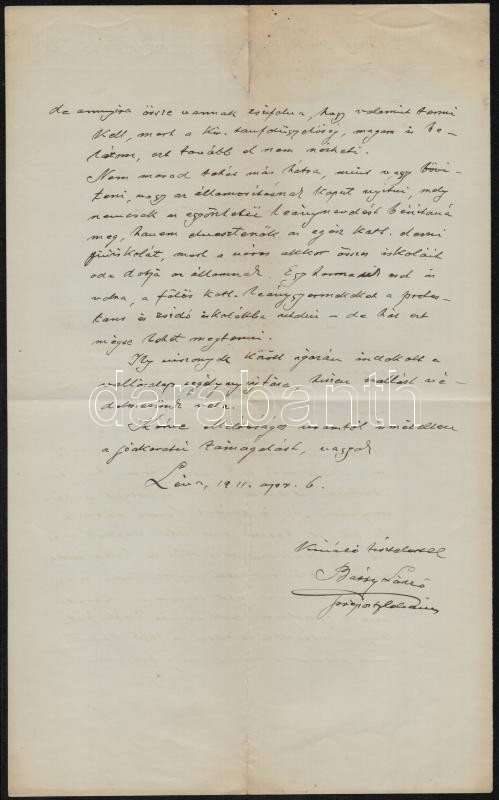 de annyira össze vannak zsúfolva, hogy valamit tenni
kell, mert a kir. tanfelügyelőség, magam is be-
látom, ezt tovább el nem nézheti.
Nem marad tehát más hátra, mint vagy bőví-
teni, vagy az államosításnak kaput nyitni, mely
nemcsak az egyöntetű leánynevelést bénítaná
meg, hanem elvesztenők az egész kath. elemi
fiúiskolát, mert a város akkor összes iskoláit
oda dobja az államnak. Egy harmadik eset is
volna, a fölös kath. leánygyermekeket a protes-
tans és zsidó iskolákba utalni – de hát ezt
mégse lehet megtenni.
Ily viszonyok között igazán indokolt a
vallásalap segélynyujtása, hiszen vallást vé-
delmezünk vele.
Kérve Méltóságos uramtól ismételten
a jóakaratú támogatást, vagyok
Léva, 1911. apr. 6.
Kiváló tisztelettel
Báthy László
prépost plebános
darabanth